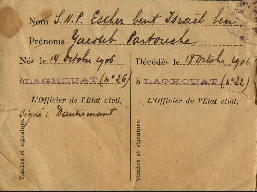 Nom S.N.P. Esther bent Israël ben
Prénoms Yacoub Partouche
Né le 14 Octobre 1906
à LAGHOUAT (n°26)
L'Officier de l'Etat civil,
signé : Dautremant
Timbre et signature.
Décédé le 18 Octobre 1906
à LAGHOUAT (n°22)
L'Officier de l'Etat civil,
Timbre et signature.